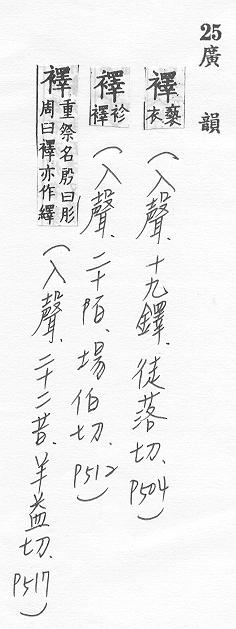 25 廣韻
襗 褻衣 (入聲.十九鐸.徒落切.P504)
襗 袗襗 (入聲.二十陌.場伯切.P512)
襗 重祭名殷曰肜周曰襗亦作繹 (入聲.二十二昔.羊益切.P517)